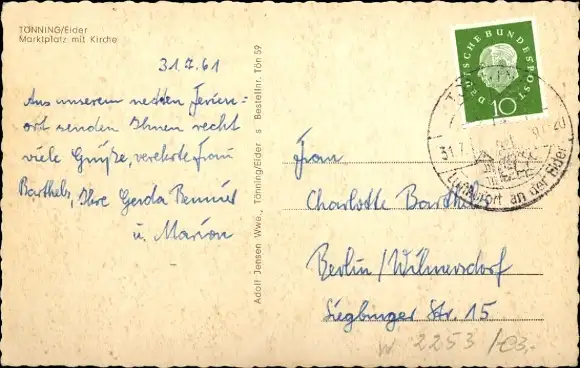 TÖNNING/Eider
Marktplatz mit Kirche
31.7.61
Aus unserem netten Ferien=
ort senden Ihnen recht
viele Grüße, verehrte Frau
Barthel, Ihre Gerda
u. Marion
Adolf Jensen Wwe., Tönning/Eider s Bestellnr. Tön 59
DEUTSCHE BUNDESPOST
10
31.7.
-20
Luftkurort an der Eider
Frau
Charlotte Barthel
Berlin/Wilmersdorf
Str. 15
W 2253 /€3,-